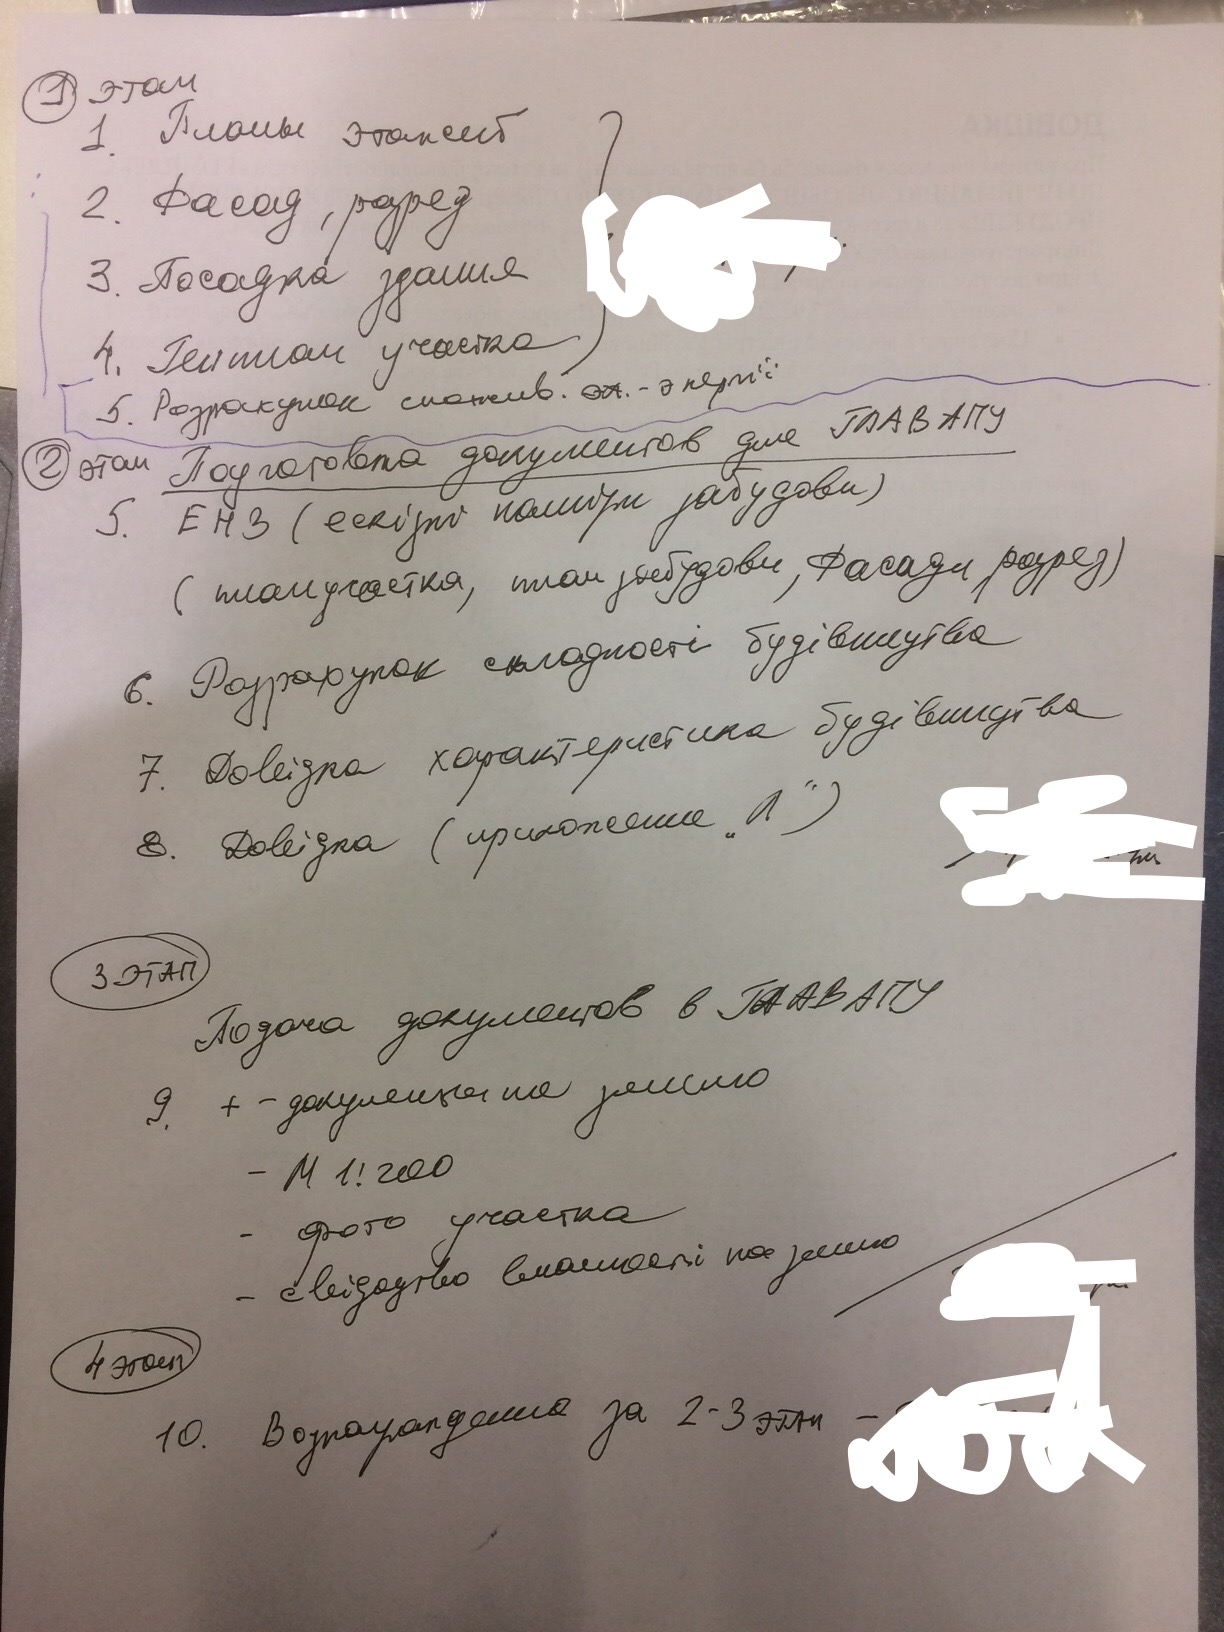 1 этап
1. Планы этажей
2. Фасад, разрез
3. Посадка здания
4. Генплан участка
5. Розрахунок спожив. эл.-энергії
2 этап Подготовка документов для ГЛАВАПУ
5. ЕНЗ (ескізні наміри забудови)
(план участка, план забудови, Фасади, разрез)
6. Розрахунок складності будівництва
7. Довідка характеристика будівництва
8. Довідка (приложение „Л")
3 ЭТАП
Подача документов в ГЛАВАПУ
9. + - документы на землю
- М 1:200
- фото участка
- свідоцтво власності на землю
4 этап
10. Вознаграждение за 2-3 этап -